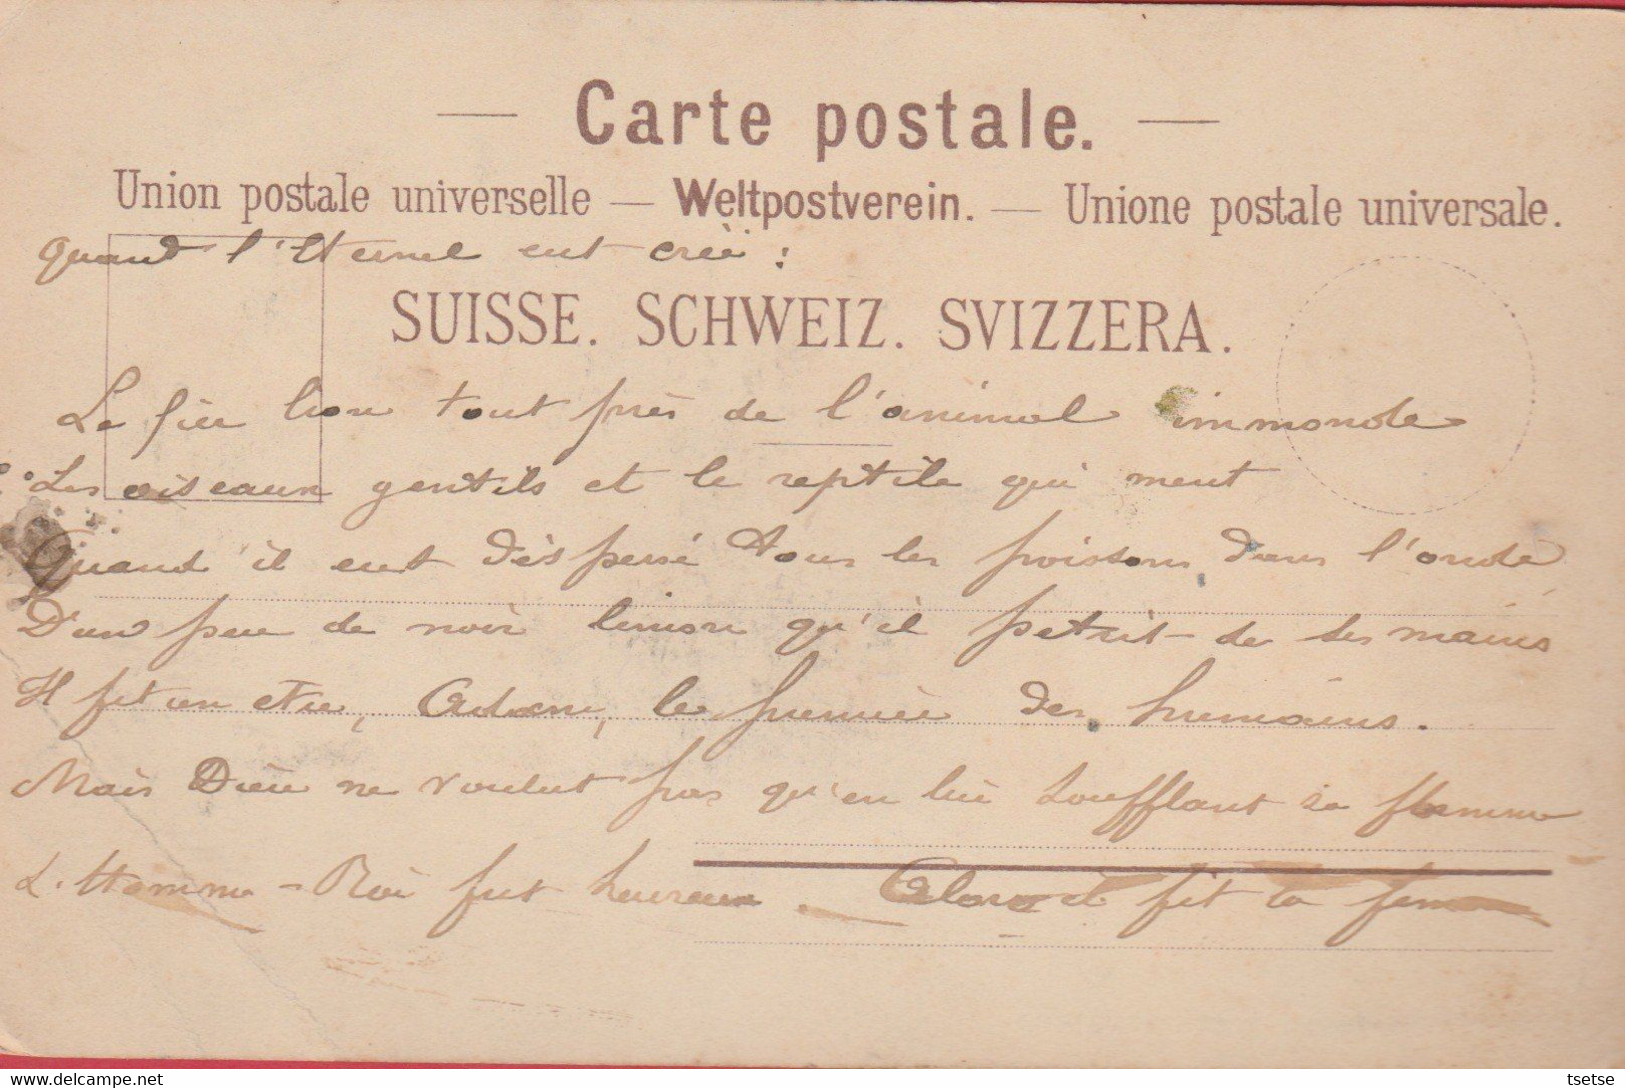 — Carte postale. —
Union postale universelle — Weltpostverein. — Unione postale universale.
Quand l'Eternel eut créé :
SUISSE. SCHWEIZ. SVIZZERA.
Le fier lion tout près de l'animal immonde
Les oiseaux gentils et le reptile qui ment
Quand il eut dispersé tous les poissons dans l'onde
D'un peu de noir limon qu'il petrit de ses mains
Il fit un etre, Adam, le premier des humains.
Mais Dieu ne voulut pas qu'en lui soufflant sa flamme
L'Homme-Roi fut heureux. Alors il fit la femme
Hors ligne-Vente-Achat & Collections
DELCAMPE.NET
tsetse